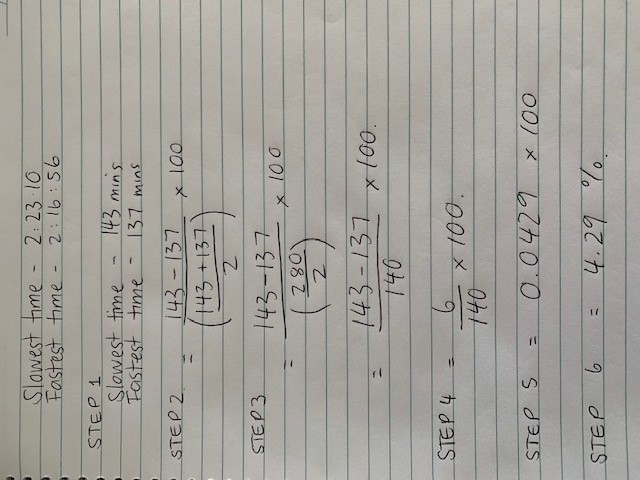 Slowest time - 2:23:10
Fastest time - 2:16:56
STEP 1
Slowest time - 143 mins
Fastest time - 137 mins
STEP 2
= (143 - 137) / ((143 + 137) / 2) × 100
STEP 3
= (143 - 137) / ((280) / 2) × 100
= (143 - 137) / 140 × 100.
STEP 4 = 6 / 140 × 100.
STEP 5 = 0.0429 × 100
STEP 6 = 4.29 %.